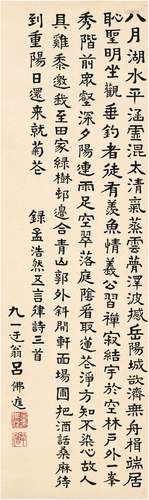 八月湖水平涵虛混太清氣蒸雲夢澤波撼岳陽城欲濟無舟楫端居
恥聖明坐觀垂釣者徒有羨魚情義公習禪寂結宇於空林戶外一峯
秀階前眾壑深夕陽連雨足空翠落庭陰看取蓮花淨方知不染心故人
具雞黍邀我至田家綠樹邨邊合青山郭外斜開軒面場圃把酒話桑麻待
到重陽日還來就菊花 錄孟浩然五言律詩三首
九一迂翁呂佛庭